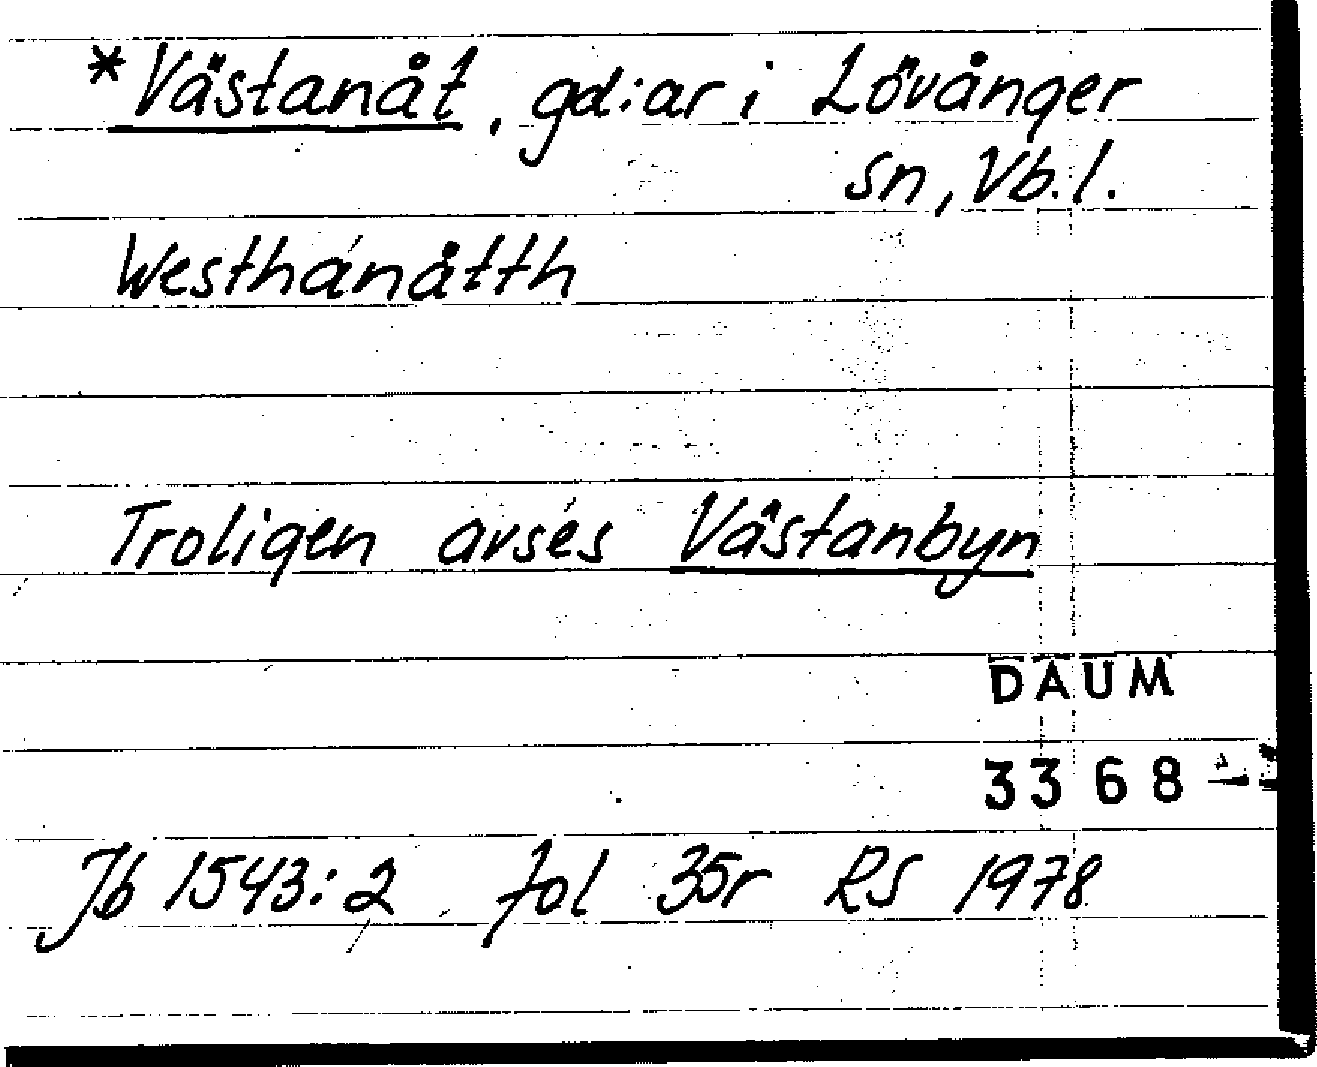 *Västanåt, gd:ar i Lövånger
sn, Vb.l.
Westhanåtth
Troligen avses Västanbyn
DAUM
3368
Jb 1543:2 fol 35r RS 1978